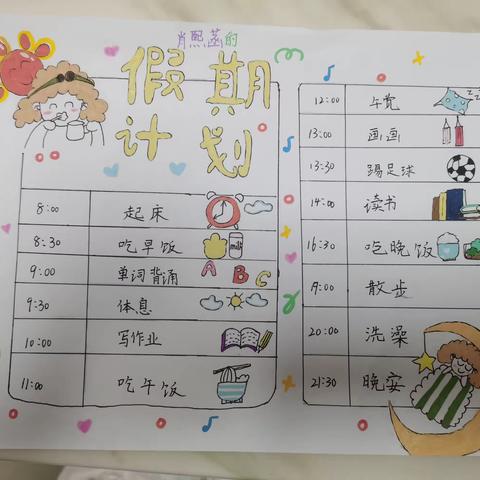 肖熙菡的
假期
计划
8:00 起床
8:30 吃早饭
milk
9:00 单词背诵 A B C
9:30 体息
10:00 写作业
11:00 吃午饭
12:00 午觉 z z z
13:00 画画
13:30 踢足球
14:00 读书
16:30 吃晚饭
19:00 散步
20:00 洗澡
21:30 晚安